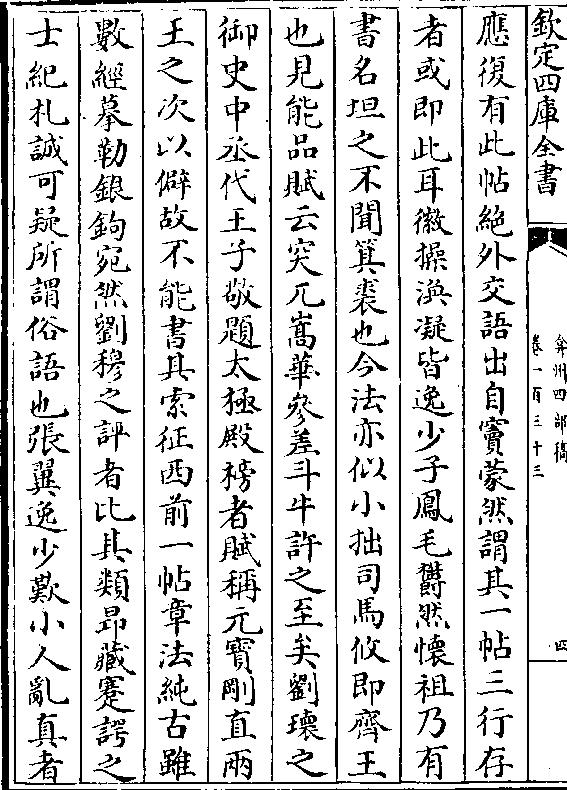 欽定四庫全書
弇州四部稿
卷一百三十三
四
應復有此帖絶外交語出自竇蒙然謂其一帖三行存
者或即此耳徽操渙凝皆逸少子鳳毛欝然懷祖乃有
書名坦之不聞箕裘也今法亦似小拙司馬攸即齊王
也見能品賦云突兀嵩華參差斗牛許之至矣劉瓌之
御史中丞代王子敬題太極殿榜者賦稱元寳剛直兩
王之次以僻故不能書其索征西前一帖章法純古雖
數經摹勒銀鉤宛然劉穆之評者比其類昂藏蹇諤之
士紀札誠可疑所謂俗語也張翼逸少歎小人亂真者